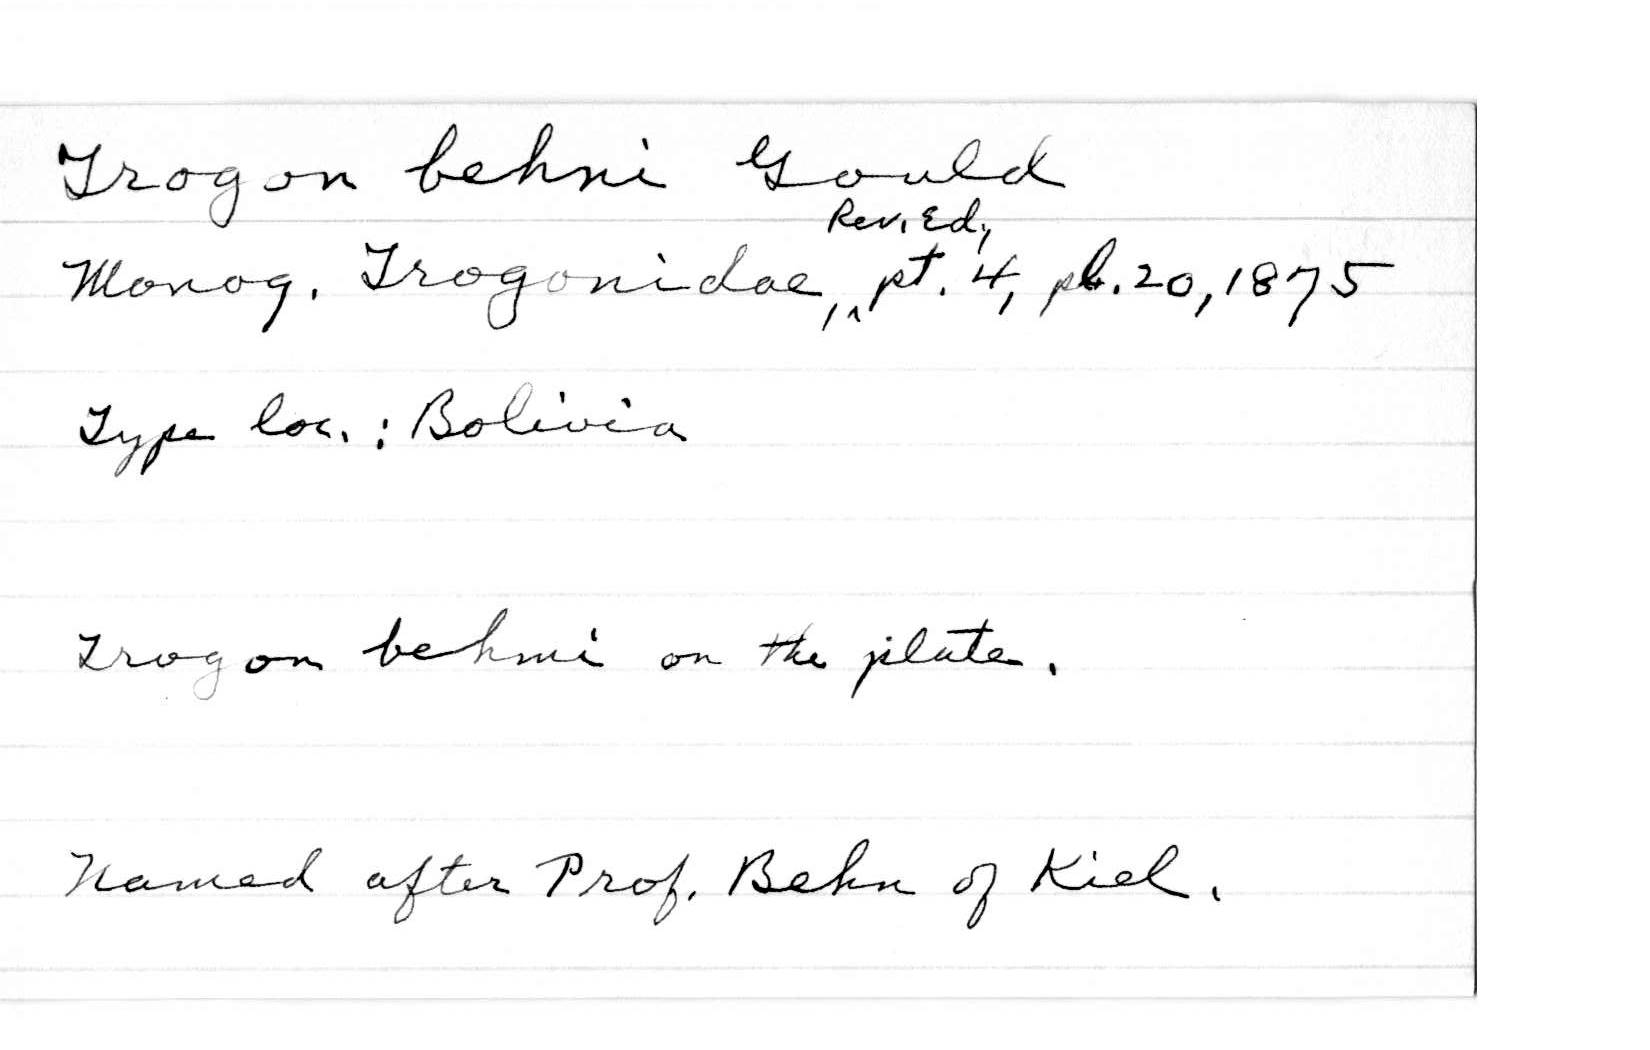 Trogon behni Gould
Monog. Trogonidae, ^ Rev. Ed., pt. 4, pl. 20, 1875
Type loc. : Bolivia
Trogon behmi on the plate.
Named after Prof. Behn of Kiel.